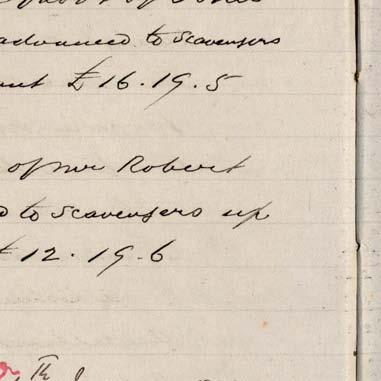 advanced to Scavengers
£ 16. 19. 5
of Mr Robert
to Scavengers up
12. 19. 6
th